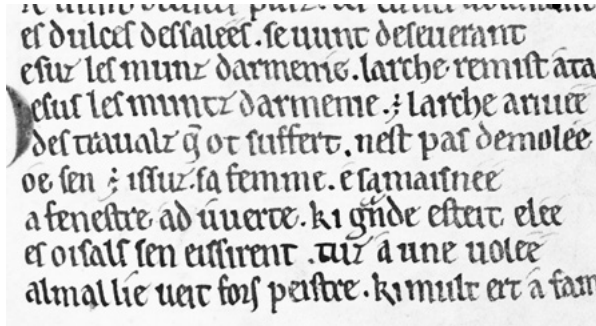 es dulces dessalees. se uunt deseuerant
e sur les munz darmenie. larche remist ata
Desus les muntz darmenie. ÷ larche ariuee
des traualz q̃ ot suffert. nest pas demolee
oe sen ÷ issuz. sa femme. e sa maisnee
a fenestre ad uuerte. ki gᵃnde esteit elee
es oisals sen eissirent. tuz a une uolee
al mallie ueit fors peistre. ki mult ert a fam